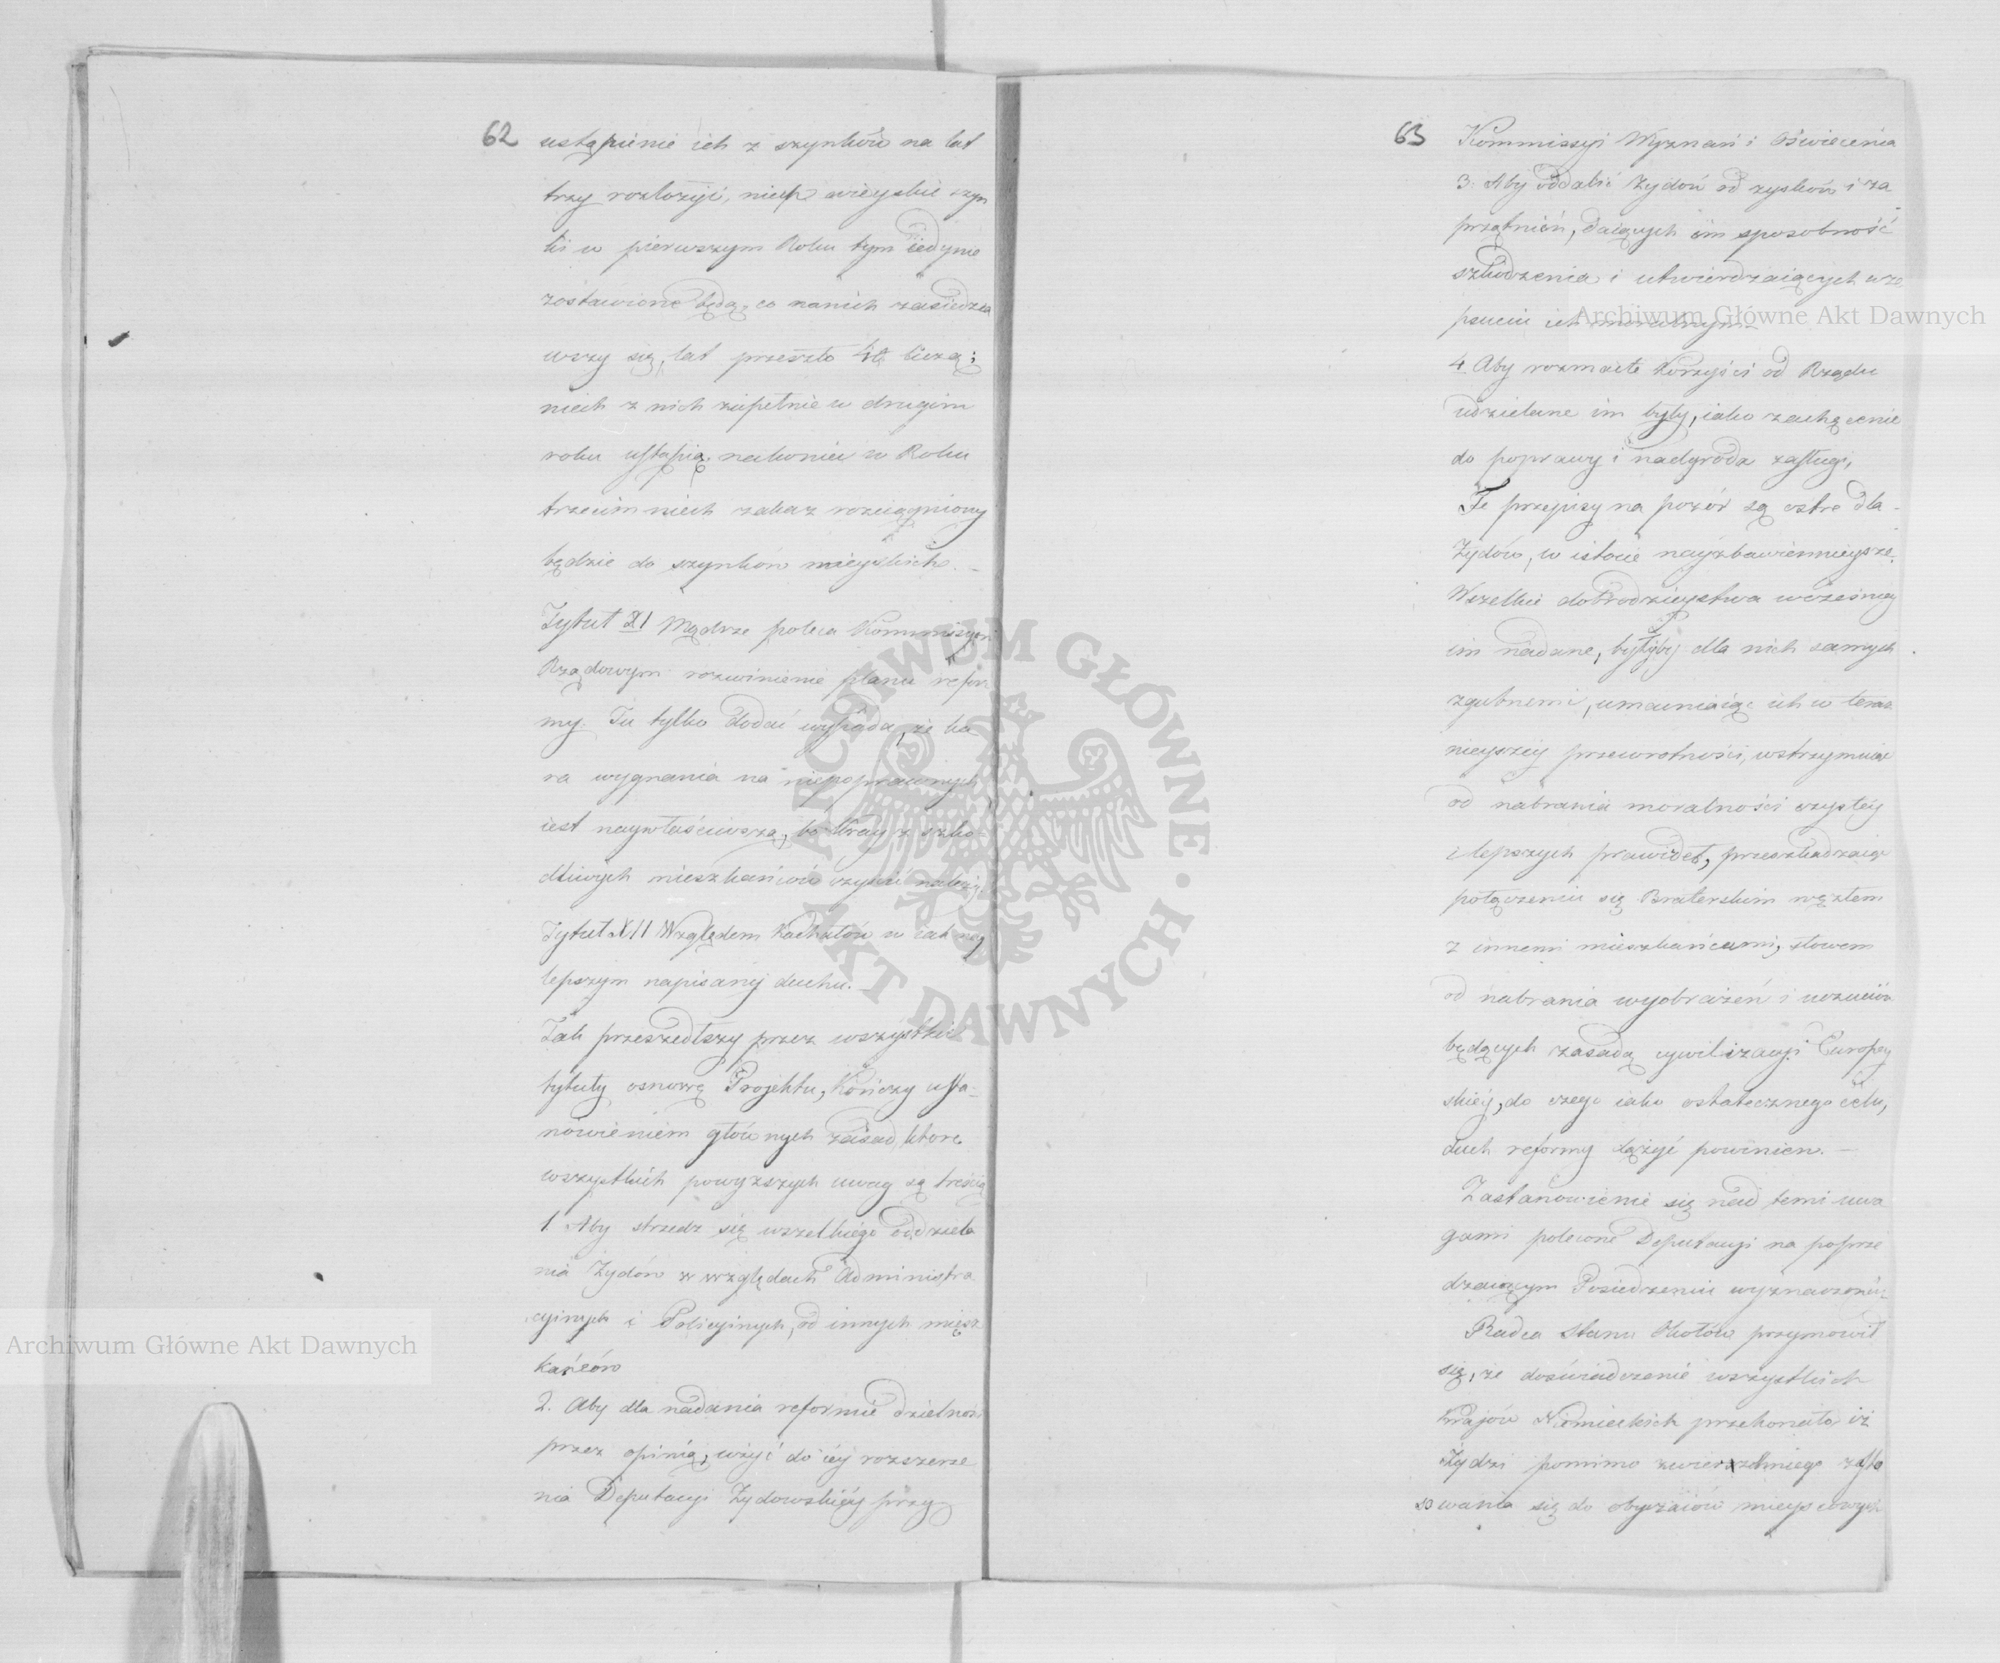 62
ustąpienie ich z szynków na lat
trzy rozłożyć, niech wieyskie szyn
ki w pierwszym Roku tym iedynie
zostawione będą, co na nich zasiedzia
wszy się, lat przeszło 40 liczą;
niech z nich zupełnie w drugim
roku ustąpią, nakoniec w Roku
trzecim niech zakaz rozciągniony
będzie do szynków mieyskich. —
Tytuł XI Mądrze poleca Kommissyom
Rządowym rozwinienie planu refor
my. Tu tylko dodać wypada, że ka
ra wygnania na niepoprawnych
iest naywłaściwszą, bo Kray z szko-
dliwych mieszkańców czyścić należy
Tytuł XII Względem Kachałów w iak nay
lepszym napisany duchu. —
Tak przeszedłszy przez wszystkie
tytuły osnowę Projektu, kończy usta-
nowieniem głównych zasad, które
wszystkich powyższych uwag są treścią
1. Aby strzedz się wszelkiego oddziela
nia Żydów w względach Administra
cyinych i Policyinych, od innych miesz
kańców
2. Aby dla nadania reformie dzielności
przez opinią, użyć do iéy rozszerze
nia Deputacyi Żydowskiéy przy
63
Kommissyi Wyznań i Oświecenia
3. Aby oddalić Żydów od zysków i za
przątnień, daiących im sposobność
szkodzenia i utwierdzaiących w ze
psuciu ich moralnym —
4. Aby rozmaite korzyści od Rządu
udzielane im były, iako zachęcenie
do poprawy i nadgroda zasługi,
Te przepisy na pozór są ostre dla
Żydów, w istocie nayzbawiennieysze.
Wszelkie dobrodzieystwa wcześniey
im nadane, byłyby dla nich samych
zgubnemi, umacniaiąc ich w teraz
nieyszéy przewrotności, wstrzymuiąc
od nabrania moralności czystéy
i lepszych prawideł, przeszkadzaiąc
połączeniu się Braterskim węzłem
z innemi mieszkańcami, słowem
od nabrania wyobrażeń i uczuciów
będących zasadą cywilizacyi Europey
skiéy, do czego iako ostatecznego celu,
duch reformy dążyć powinien. —
Zastanowienie się nad temi uwa
gami polecone Deputacyi na poprze
dzaiącym Posiedzeniu wyznaczonéy.
Radca Stanu Okołów przymówił
się, że doświadczenie wszystkich
Krajów Niemieckich przekonało, iż
Żydzi pomimo zwierzchniego zasto
sowania się do obyczaiów mieyscowych
Archiwum Główne Akt Dawnych
Archiwum Główne Akt Dawnych
ARCHIWUM GŁÓWNE · AKT DAWNYCH ·